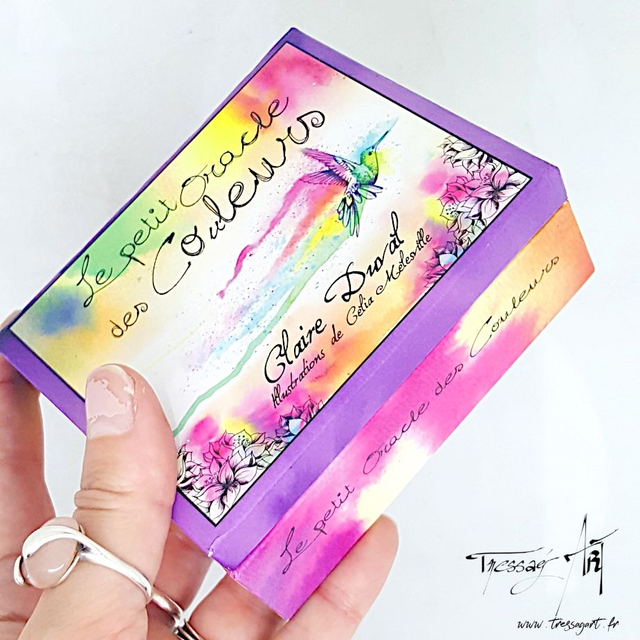 Le petit Oracle
des Couleurs
Claire Duval
Illustrations de Célia Melesville
Le petit Oracle des Couleurs
Tressag' Art
www.tressagart.fr